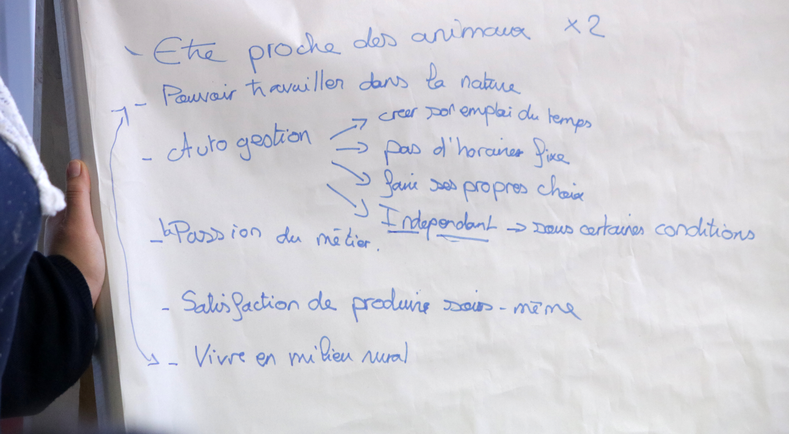 - Etre proche des animaux x2
- Pouvoir travailler dans la nature
- Auto gestion
→ créer son emploi du temps
→ pas d'horaires fixe
→ faire ses propres choix
→ Indépendant → sous certaines conditions
- la Passion du métier.
- Satisfaction de produire sois-même
- Vivre en milieu rural